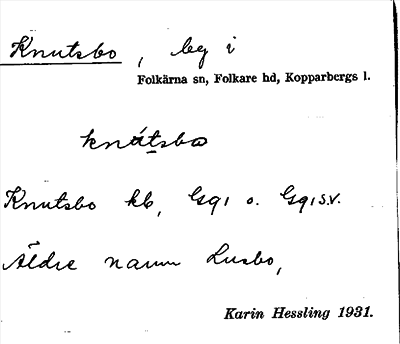 Knutsbo, by i
Folkärna sn, Folkare hd, Kopparbergs l.
knútsbo
Knutsbo kb, Gq1 o. Gq1s.v.
Äldre namn Lusbo,
Karin Hessling 1931.